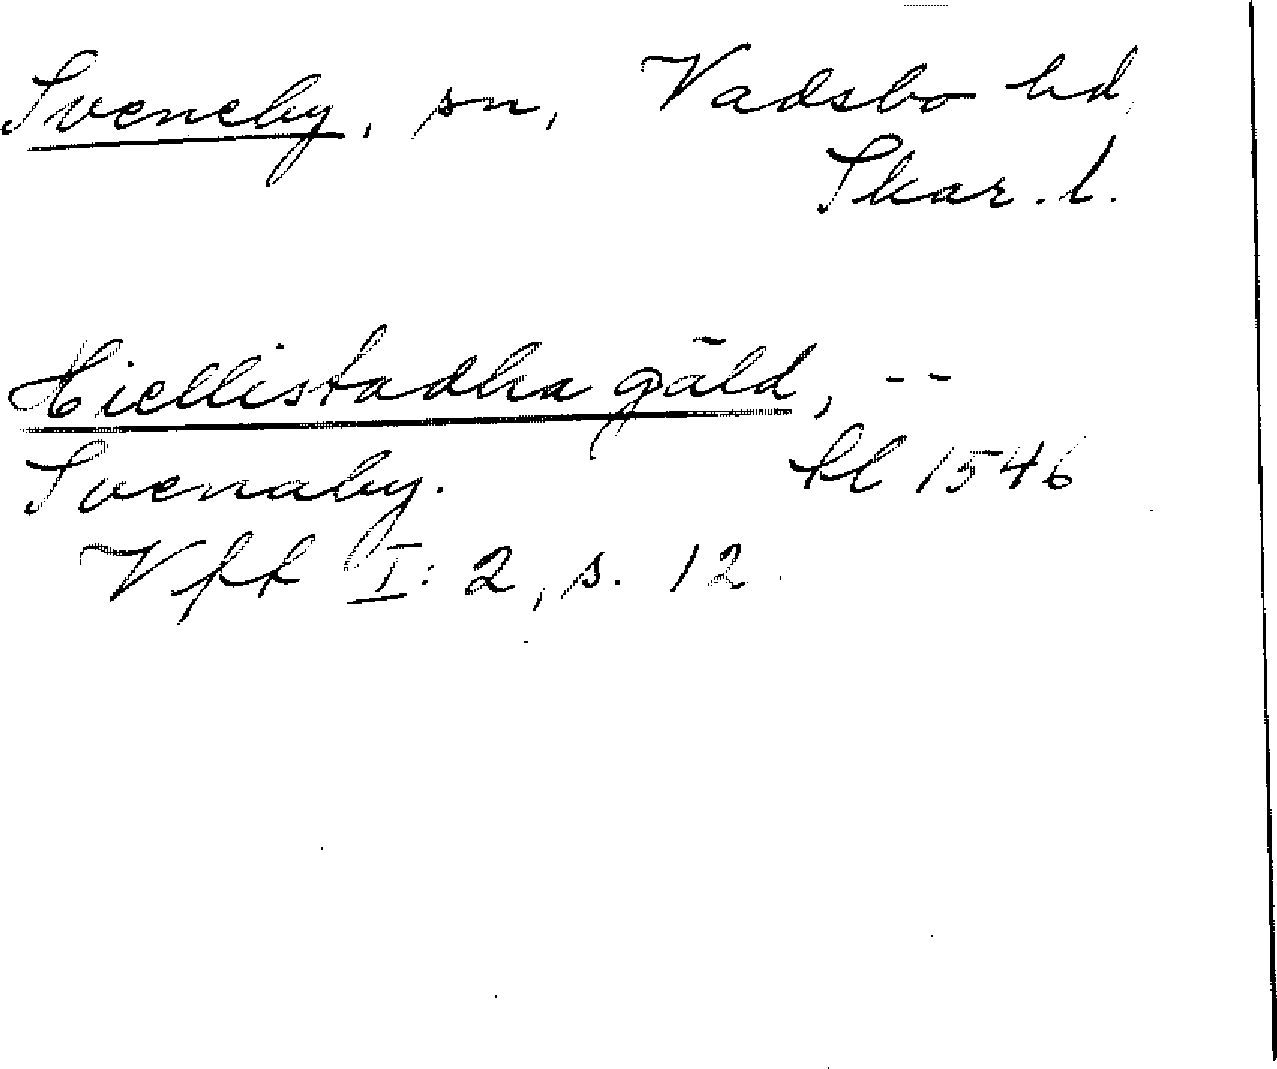 Sveneby, sn, Vadsbo hd,
Skar. l.
Hiellistadha gäld, --
Svenaby. kl 1546
Vfk I: 2, s. 12.